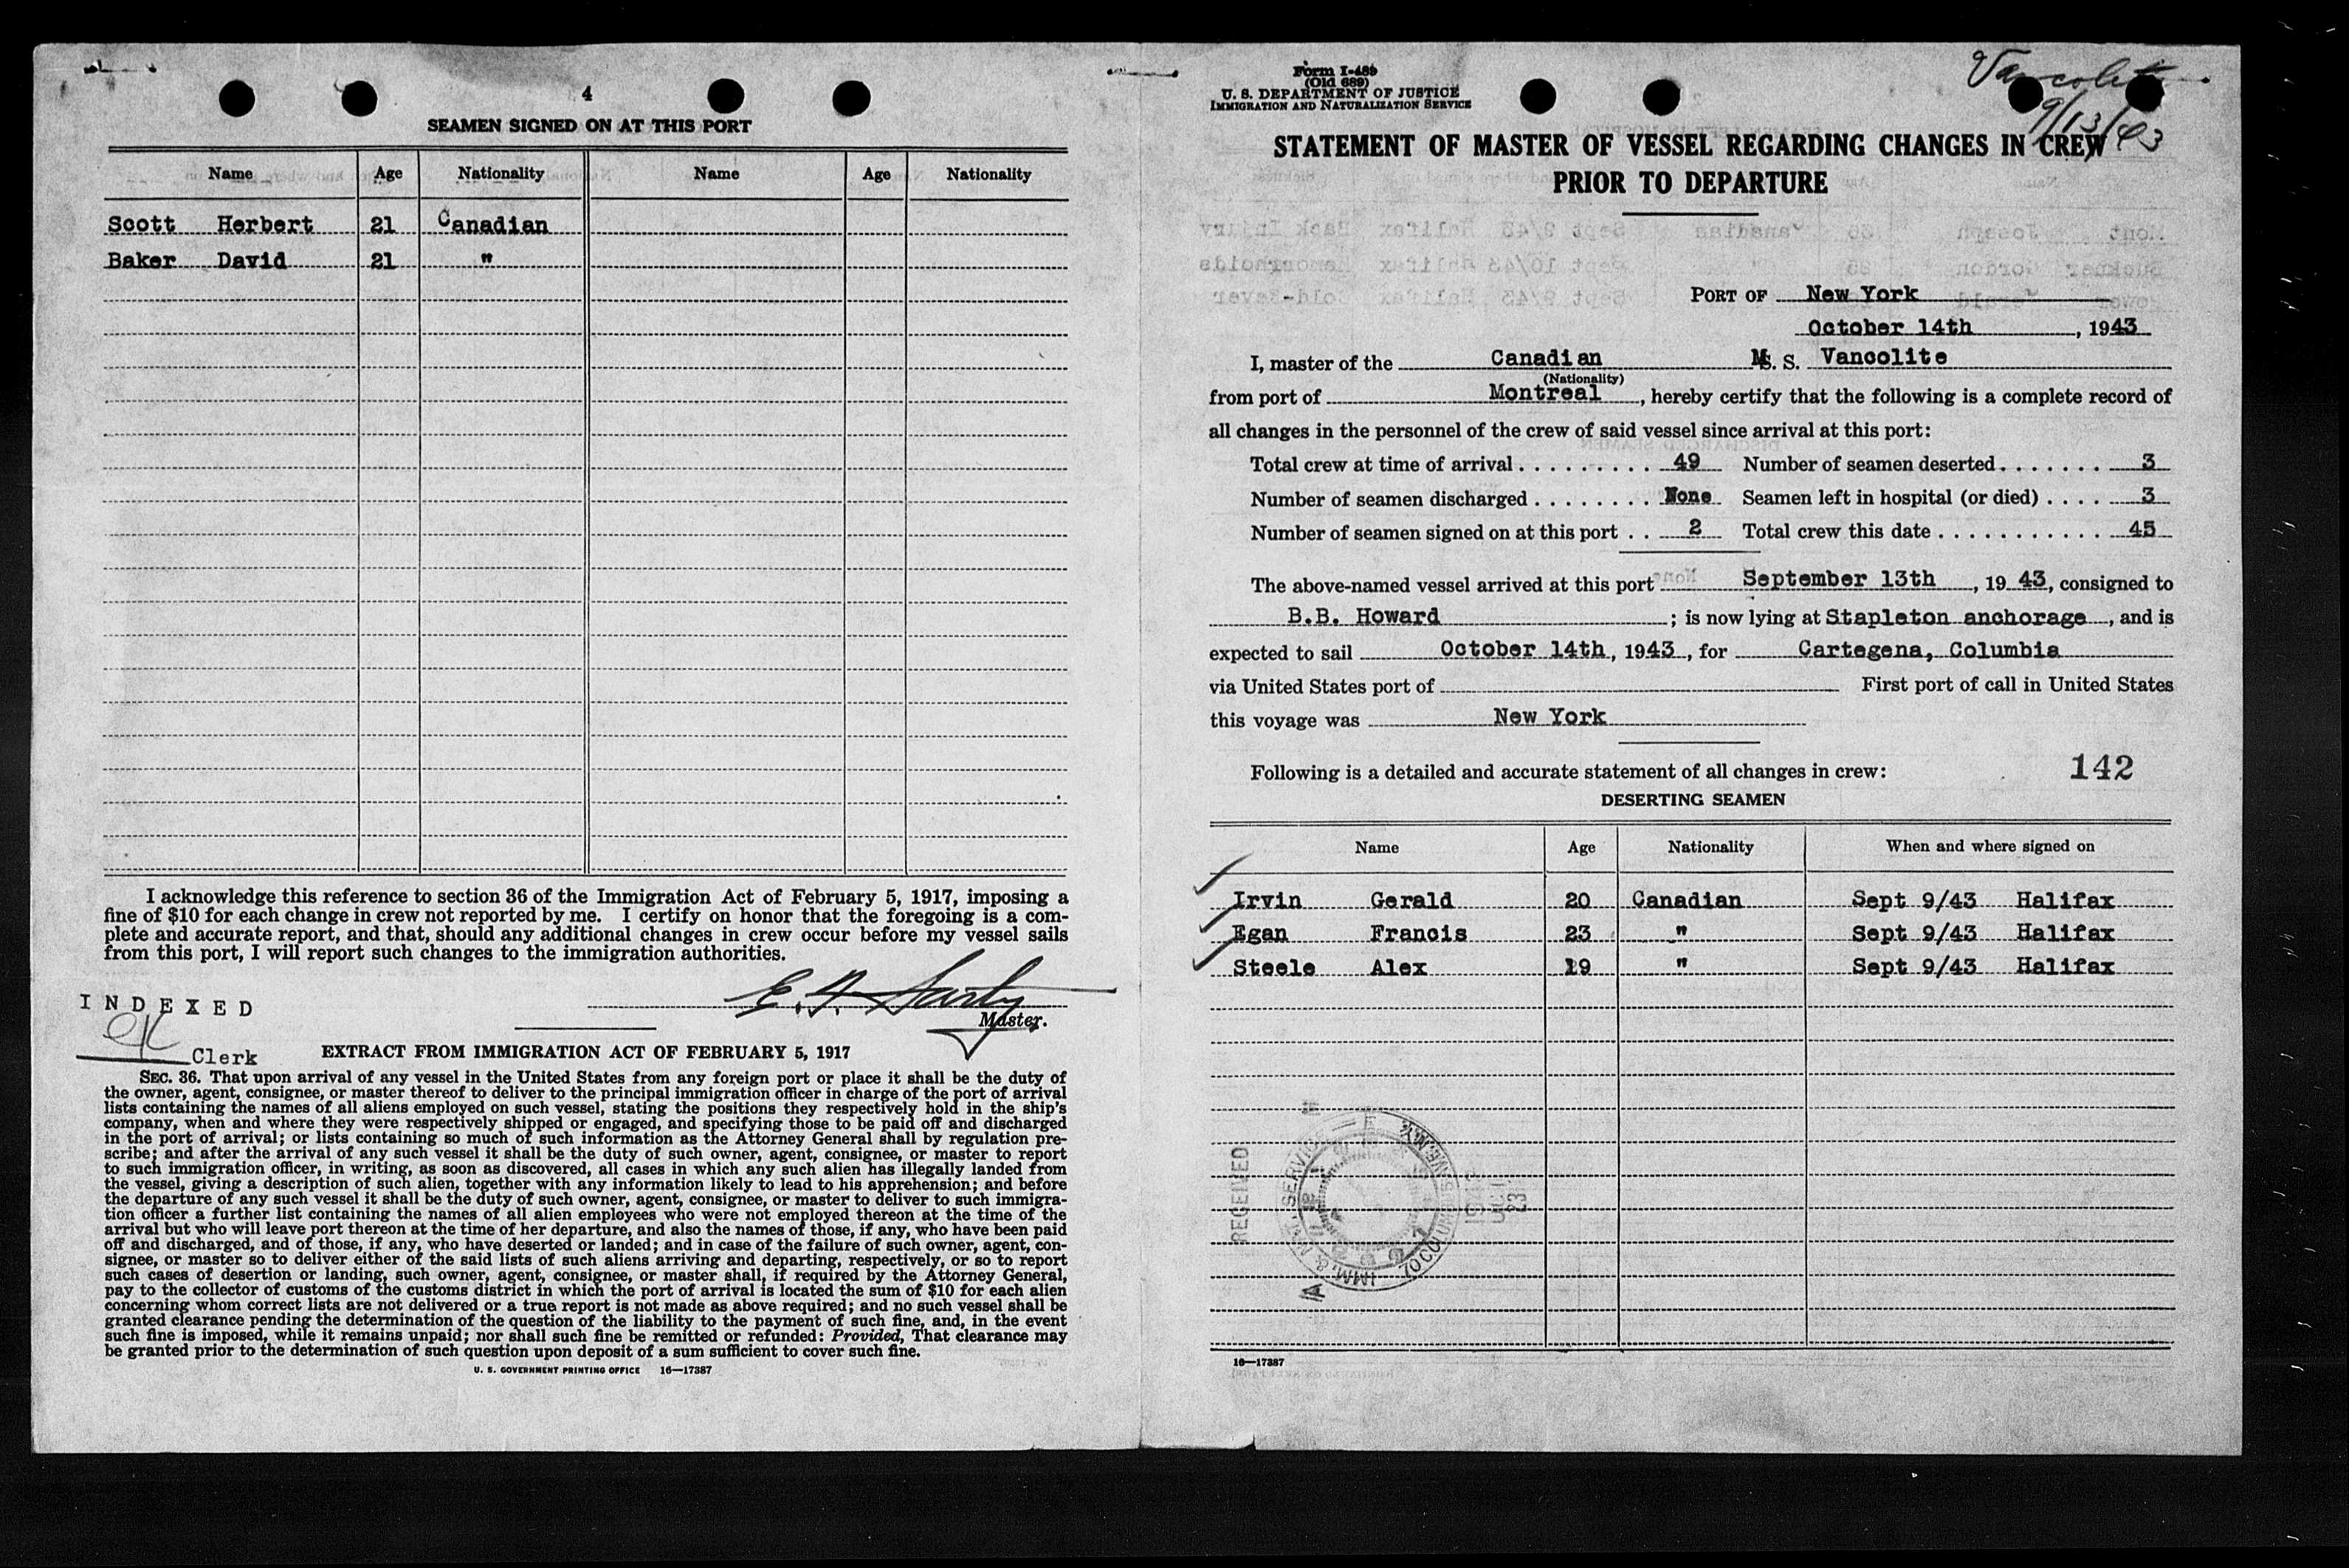 4
SEAMEN SIGNED ON AT THIS PORT
Name Age Nationality Name Age Nationality
Scott Herbert 21 Canadian
Baker David 21 "
I acknowledge this reference to section 36 of the Immigration Act of February 5, 1917, imposing a
fine of $10 for each change in crew not reported by me. I certify on honor that the foregoing is a com-
plete and accurate report, and that, should any additional changes in crew occur before my vessel sails
from this port, I will report such changes to the immigration authorities.
INDEXED
Master.
Clerk
EXTRACT FROM IMMIGRATION ACT OF FEBRUARY 5, 1917
SEC. 36. That upon arrival of any vessel in the United States from any foreign port or place it shall be the duty of
the owner, agent, consignee, or master thereof to deliver to the principal immigration officer in charge of the port of arrival
lists containing the names of all aliens employed on such vessel, stating the positions they respectively hold in the ship's
company, when and where they were respectively shipped or engaged, and specifying those to be paid off and discharged
in the port of arrival; or lists containing so much of such information as the Attorney General shall by regulation pre-
scribe; and after the arrival of any such vessel it shall be the duty of such owner, agent, consignee, or master to report
to such immigration officer, in writing, as soon as discovered, all cases in which any such alien has illegally landed from
the vessel, giving a description of such alien, together with any information likely to lead to his apprehension; and before
the departure of any such vessel it shall be the duty of such owner, agent, consignee, or master to deliver to such immigra-
tion officer a further list containing the names of all alien employees who were not employed thereon at the time of the
arrival but who will leave port thereon at the time of her departure, and also the names of those, if any, who have been paid
off and discharged, and of those, if any, who have deserted or landed; and in case of the failure of such owner, agent, con-
signee, or master so to deliver either of the said lists of such aliens arriving and departing, respectively, or so to report
such cases of desertion or landing, such owner, agent, consignee, or master shall, if required by the Attorney General,
pay to the collector of customs of the customs district in which the port of arrival is located the sum of $10 for each alien
concerning whom correct lists are not delivered or a true report is not made as above required; and no such vessel shall be
granted clearance pending the determination of the question of the liability to the payment of such fine, and, in the event
such fine is imposed, while it remains unpaid; nor shall such fine be remitted or refunded: Provided, That clearance may
be granted prior to the determination of such question upon deposit of a sum sufficient to cover such fine.
U. S. GOVERNMENT PRINTING OFFICE 16—17387
Form I-489
(Old 689)
U. S. DEPARTMENT OF JUSTICE
IMMIGRATION AND NATURALIZATION SERVICE
Vancolite
9/13/43
STATEMENT OF MASTER OF VESSEL REGARDING CHANGES IN CREW
PRIOR TO DEPARTURE
PORT OF New York
October 14th, 1943
I, master of the Canadian M.S. S. Vancolite
(Nationality)
from port of Montreal, hereby certify that the following is a complete record of
all changes in the personnel of the crew of said vessel since arrival at this port:
Total crew at time of arrival . . . . . . . . . 49 Number of seamen deserted . . . . . . . 3
Number of seamen discharged . . . . . . . . None Seamen left in hospital (or died) . . . . 3
Number of seamen signed on at this port . . 2 Total crew this date . . . . . . . . . . . . 45
The above-named vessel arrived at this port September 13th, 1943, consigned to
B.B. Howard; is now lying at Stapleton anchorage, and is
expected to sail October 14th, 1943, for Cartegena, Columbia
via United States port of First port of call in United States
this voyage was New York
Following is a detailed and accurate statement of all changes in crew: 142
DESERTING SEAMEN
Name Age Nationality When and where signed on
Irvin Gerald 20 Canadian Sept 9/43 Halifax
Egan Francis 23 " Sept 9/43 Halifax
Steele Alex 19 " Sept 9/43 Halifax
RECEIVED
16—17387